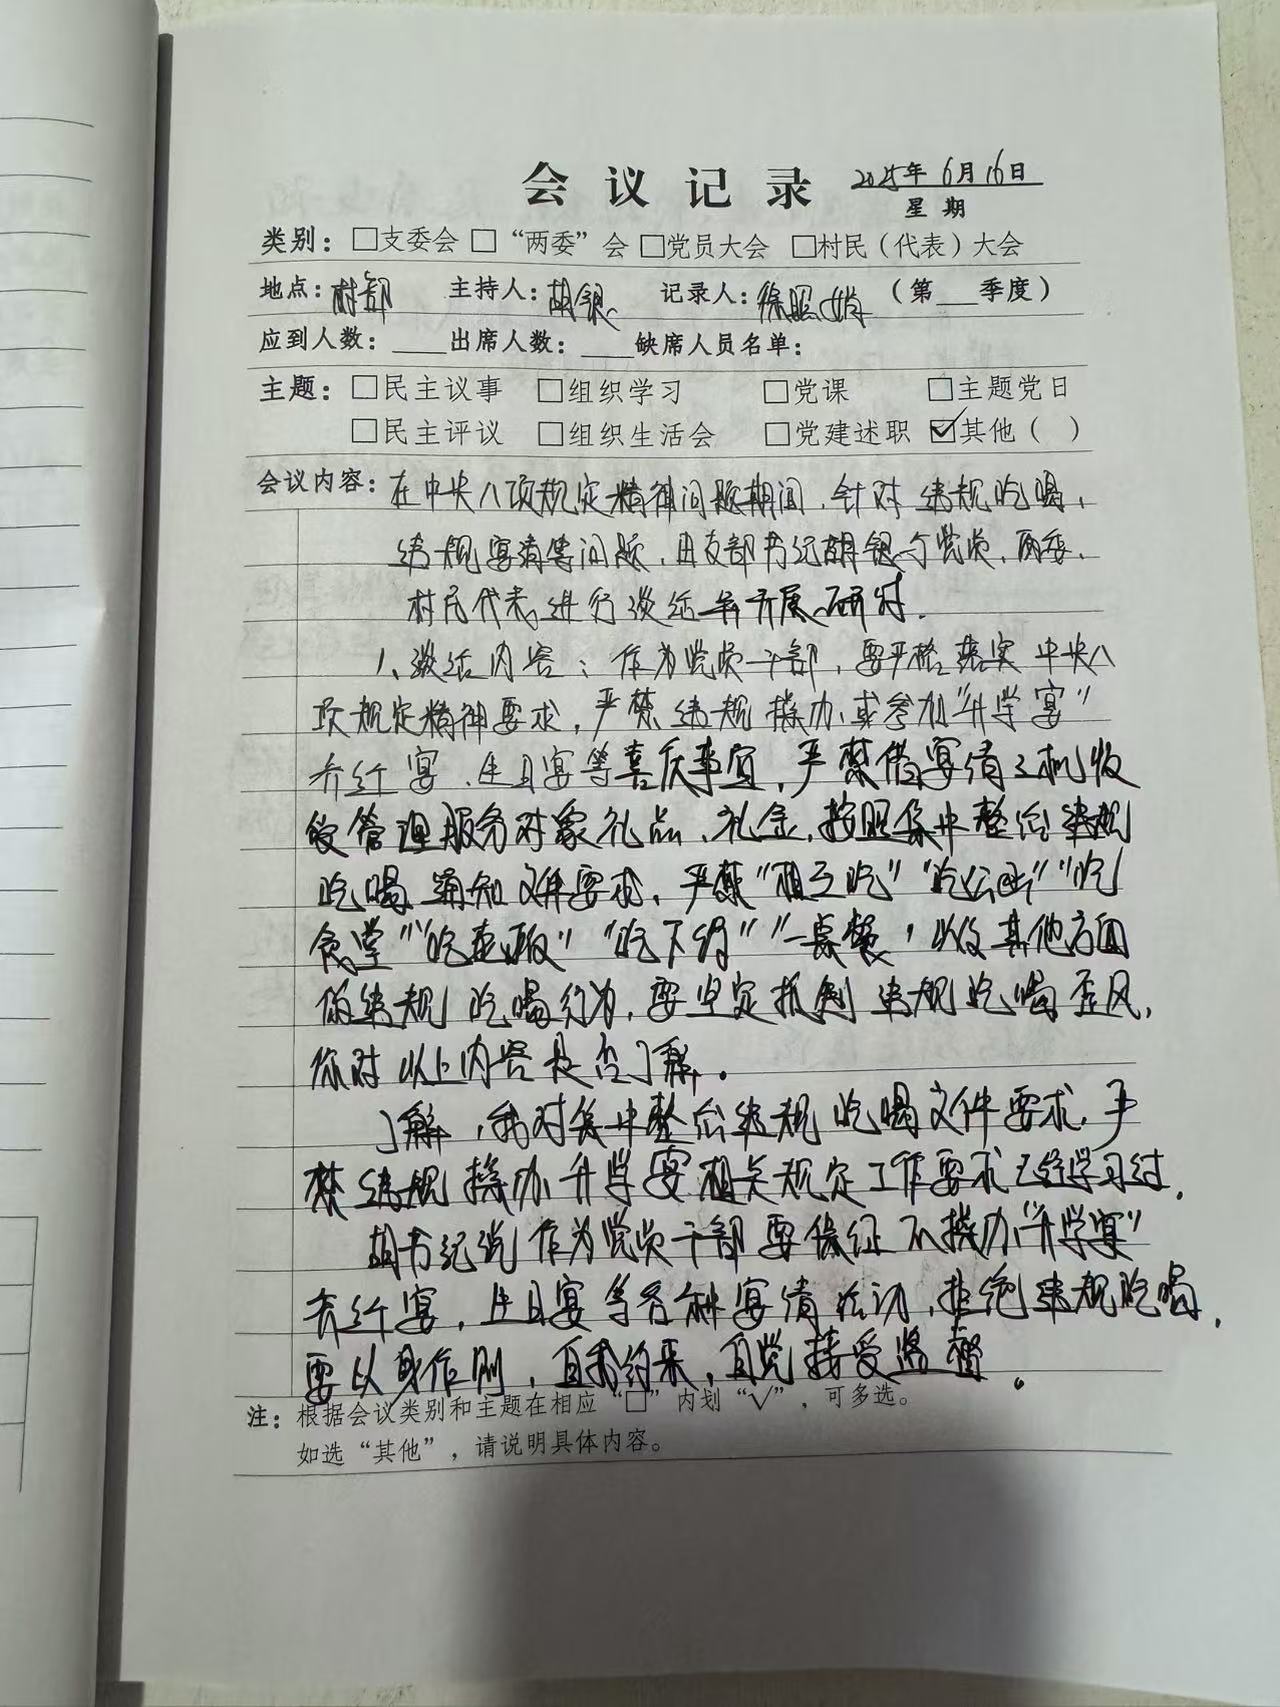 会议记录 2025年6月16日
星期
类别：□支委会 □“两委”会 □党员大会 □村民（代表）大会
地点：村部 主持人：胡银 记录人：徐照 （第 季度）
应到人数： 出席人数： 缺席人员名单：
主题：□民主议事 □组织学习 □党课 □主题党日
□民主评议 □组织生活会 □党建述职 ☑其他（ ）
会议内容：在中央八项规定精神问题期间，针对违规吃喝，
违规宴请等问题，由支部书记胡银与党员，两委，
村民代表进行谈话并开展研讨。
1、谈话内容：作为党员干部，要严格落实中央八
项规定精神要求，严禁违规操办或参加“升学宴”
乔迁宴、生日宴等喜庆事宜，严禁借宴请之机收
受管理服务对象礼品、礼金，按照集中整治违规
吃喝通知文件要求，严禁“相互吃”“吃公函”“吃
食堂”“吃老板”“吃下级”“一桌餐，以及其他方面
的违规吃喝行为，要坚定抵制违规吃喝歪风，
你对以上内容是否了解。
了解，我对集中整治违规吃喝文件要求，严
禁违规操办升学宴相关规定工作要求已经学习过，
胡书记说作为党员干部要保证不操办“升学宴”
乔迁宴，生日宴等各种宴请活动，拒绝违规吃喝，
要以身作则，自我约束，自觉接受监督。
注：根据会议类别和主题在相应“□”内划“√”，可多选。
如选“其他”，请说明具体内容。